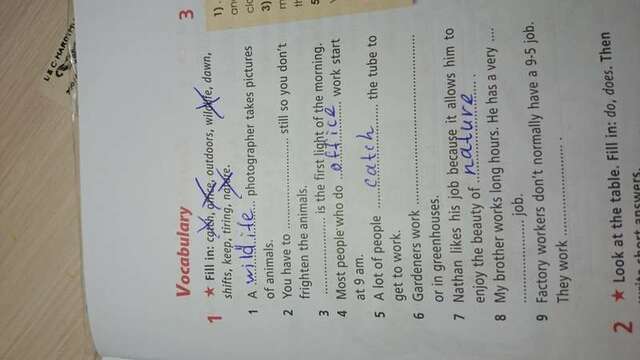 Vocabulary
1 ★ Fill in: catch, office, outdoors, wildlife, dawn,
shifts, keep, tiring, nature.
1 A wildlife photographer takes pictures
of animals.
2 You have to .................. still so you don't
frighten the animals.
3 .................. is the first light of the morning.
4 Most people who do office work start
at 9 am.
5 A lot of people catch the tube to
get to work.
6 Gardeners work ..................
or in greenhouses.
7 Nathan likes his job because it allows him to
enjoy the beauty of nature.
8 My brother works long hours. He has a very ....
.................. job.
9 Factory workers don't normally have a 9-5 job.
They work .................. .
2 ★ Look at the table. Fill in: do, does. Then
short answers.
3
1)
3)